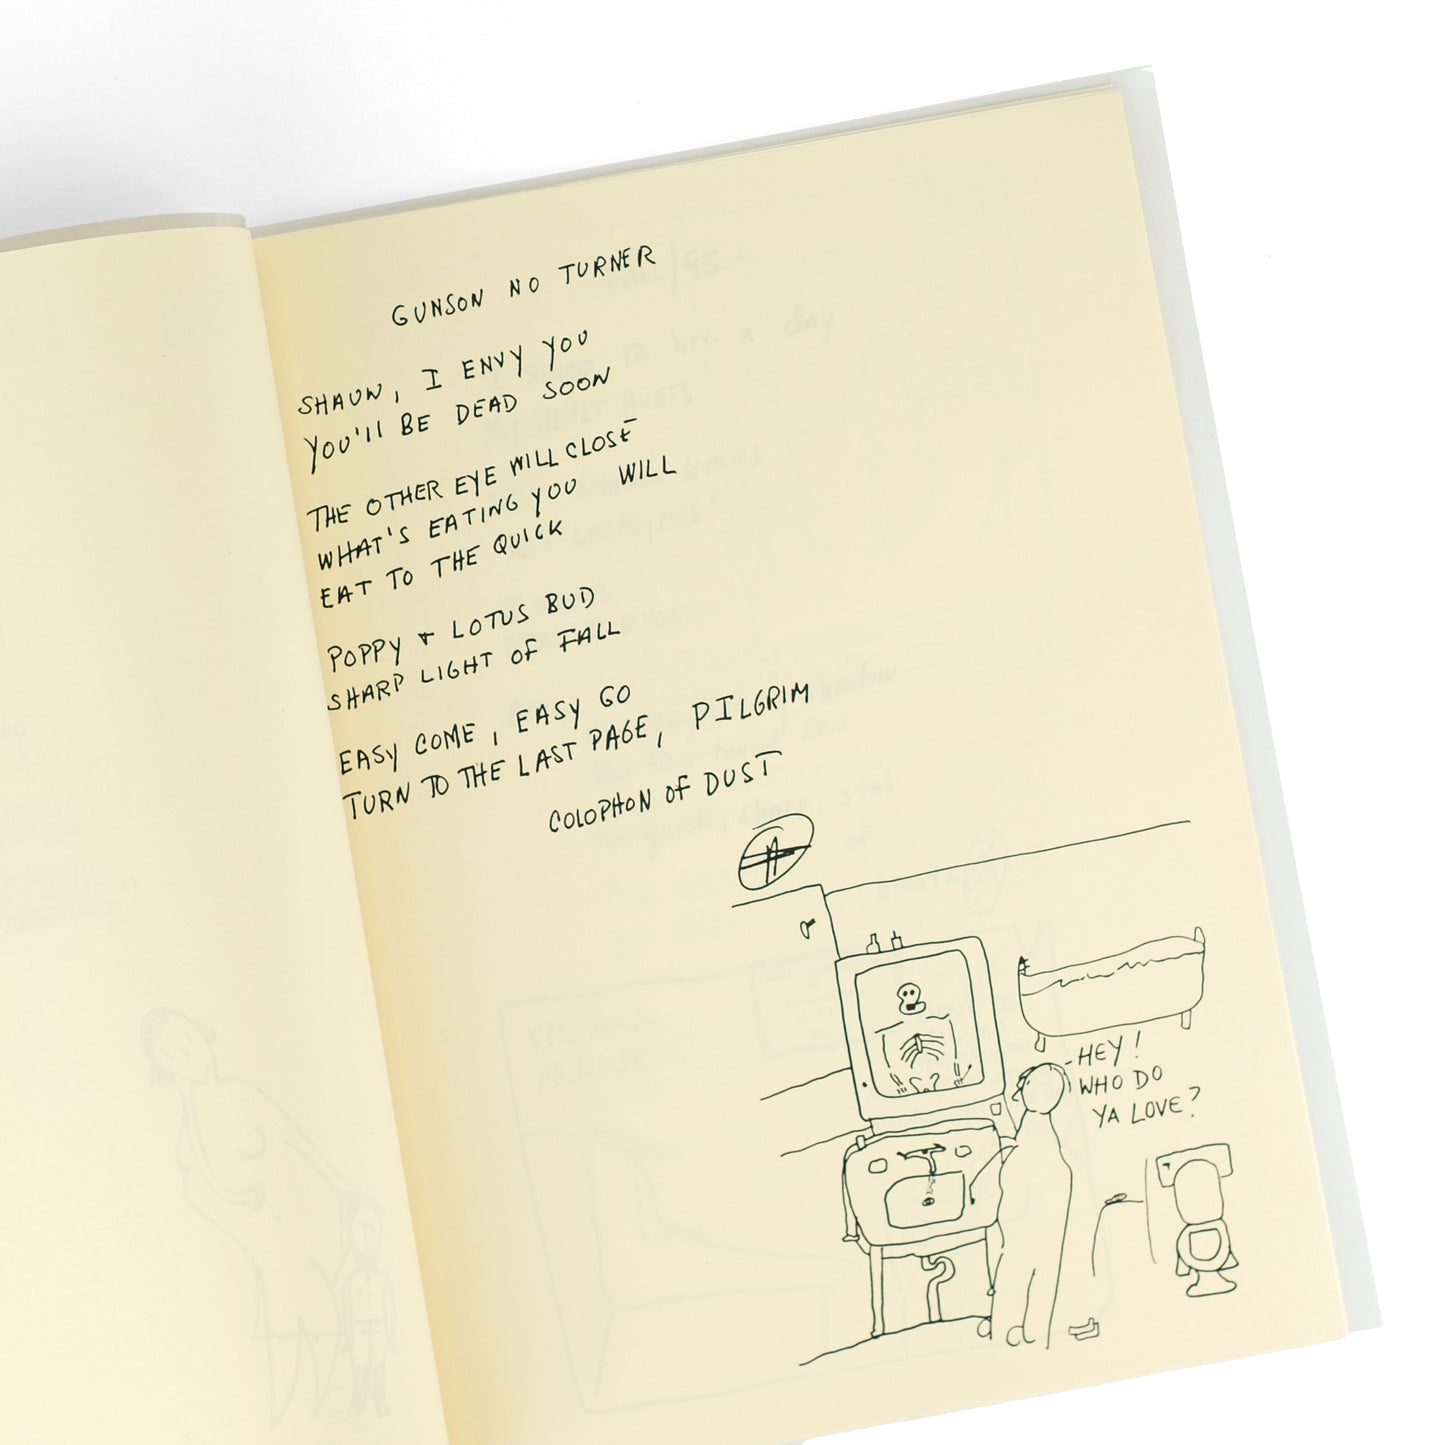 GUNSON NO TURNER
SHAUN, I ENVY YOU
YOU'll BE DEAD SOON
THE OTHER EYE WILL CLOSE
WHAT'S EATING YOU WILL
EAT TO THE QUICK
POPPY + LOTUS BUD
SHARP LIGHT OF FALL
EASY COME, EASY GO
TURN TO THE LAST PAGE, PILGRIM
COLOPHON OF DUST
HEY!
WHO DO
YA LOVE?